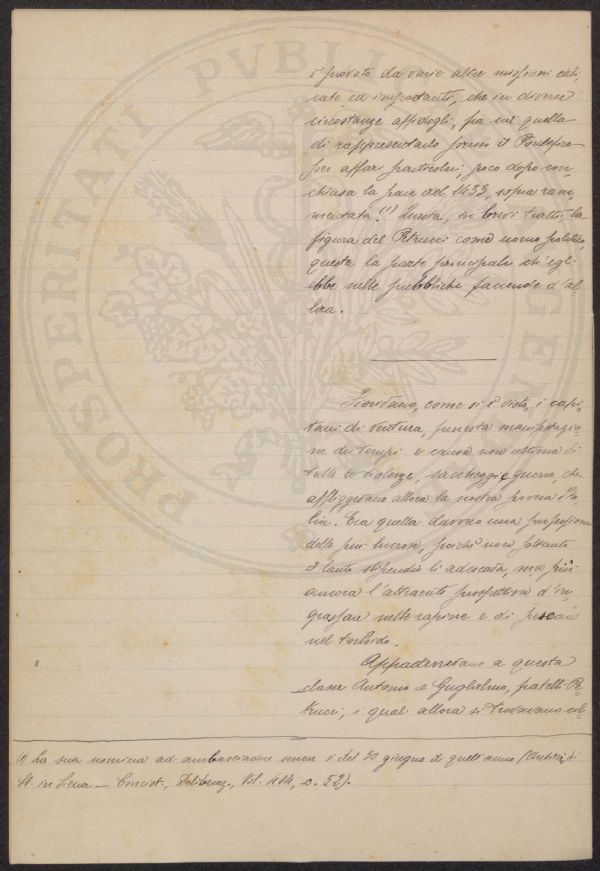 è provato da varie altre missioni deli-
cate ed importanti, che in diverse
circostanze affidogli, fra cui quella
di rappresentarlo presso il Pontefice
per affari particolari, poco dopo con-
chiusa la pace del 1453, sopra ram-
mentata.(1) Questa, in brevi tratti, la
figura del Petrucci come uomo politico,
questa la parte principale ch'egli
ebbe nelle pubbliche faccende d'al-
lora.
come si è visto, i capi-
tani di ventura, funesta
ne dei tempi, e causa non ultima di
tutte le saccheggi e guerre, che
affliggevano allora la nostra povera Ita-
lia. Era quella davvero una professione
delle più lucrose, poichè non soltanto
il lauto stipendio li adescava, ma più
ancora l'attraente prospettiva d'in-
grassare nelle rapine e di pescare
nel torbido.
Appartenevano a questa
classe Antonio e Guglielmo, fratelli Pe-
trucci, i quali allora si trovavano col-
(1) La sua nomina ad ambasciatore è del 30 giugno di quell'anno (Archivio di
St. in Siena — Concist., Deliberaz., Vol. 484, c. 52).
PROSPERITATI PVBLICAE